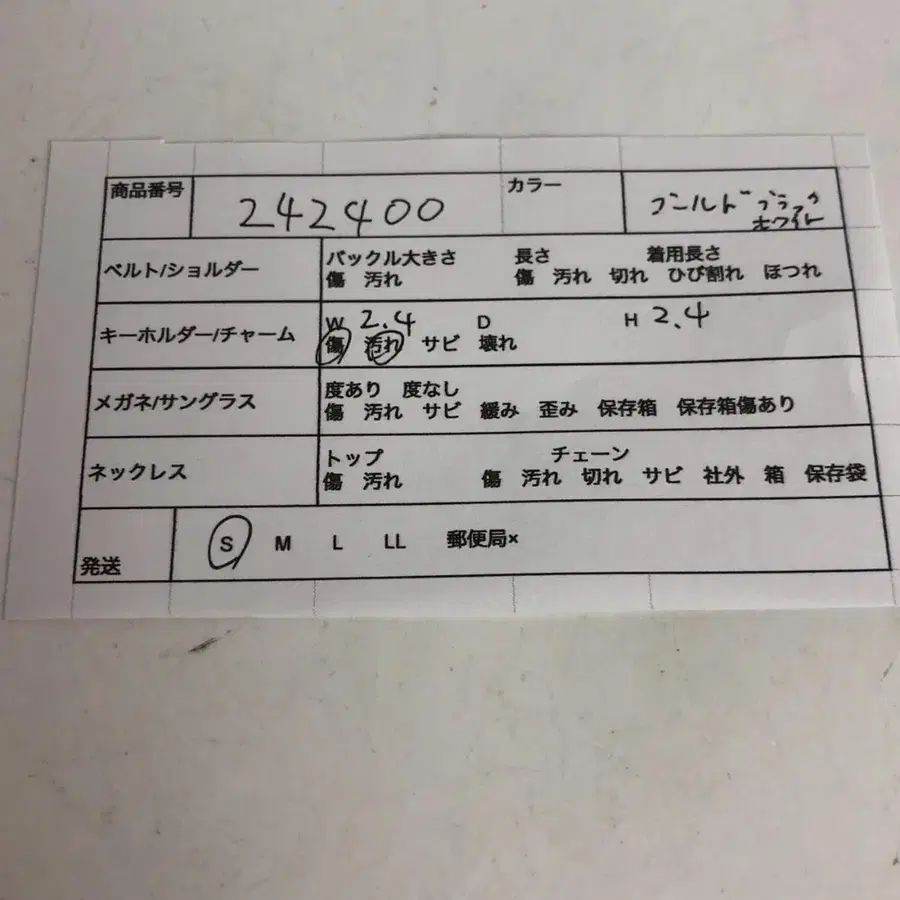 商品番号 242400 カラー ゴールド ブラック
ホワイト
ベルト/ショルダー
バックル大きさ 長さ 着用長さ
傷 汚れ 傷 汚れ 切れ ひび割れ ほつれ
キーホルダー/チャーム
W 2.4 D H 2.4
傷 汚れ サビ 壊れ
メガネ/サングラス
度あり 度なし
傷 汚れ サビ 緩み 歪み 保存箱 保存箱傷あり
ネックレス
トップ チェーン
傷 汚れ 傷 汚れ 切れ サビ 社外 箱 保存袋
発送 S M L LL 郵便局×